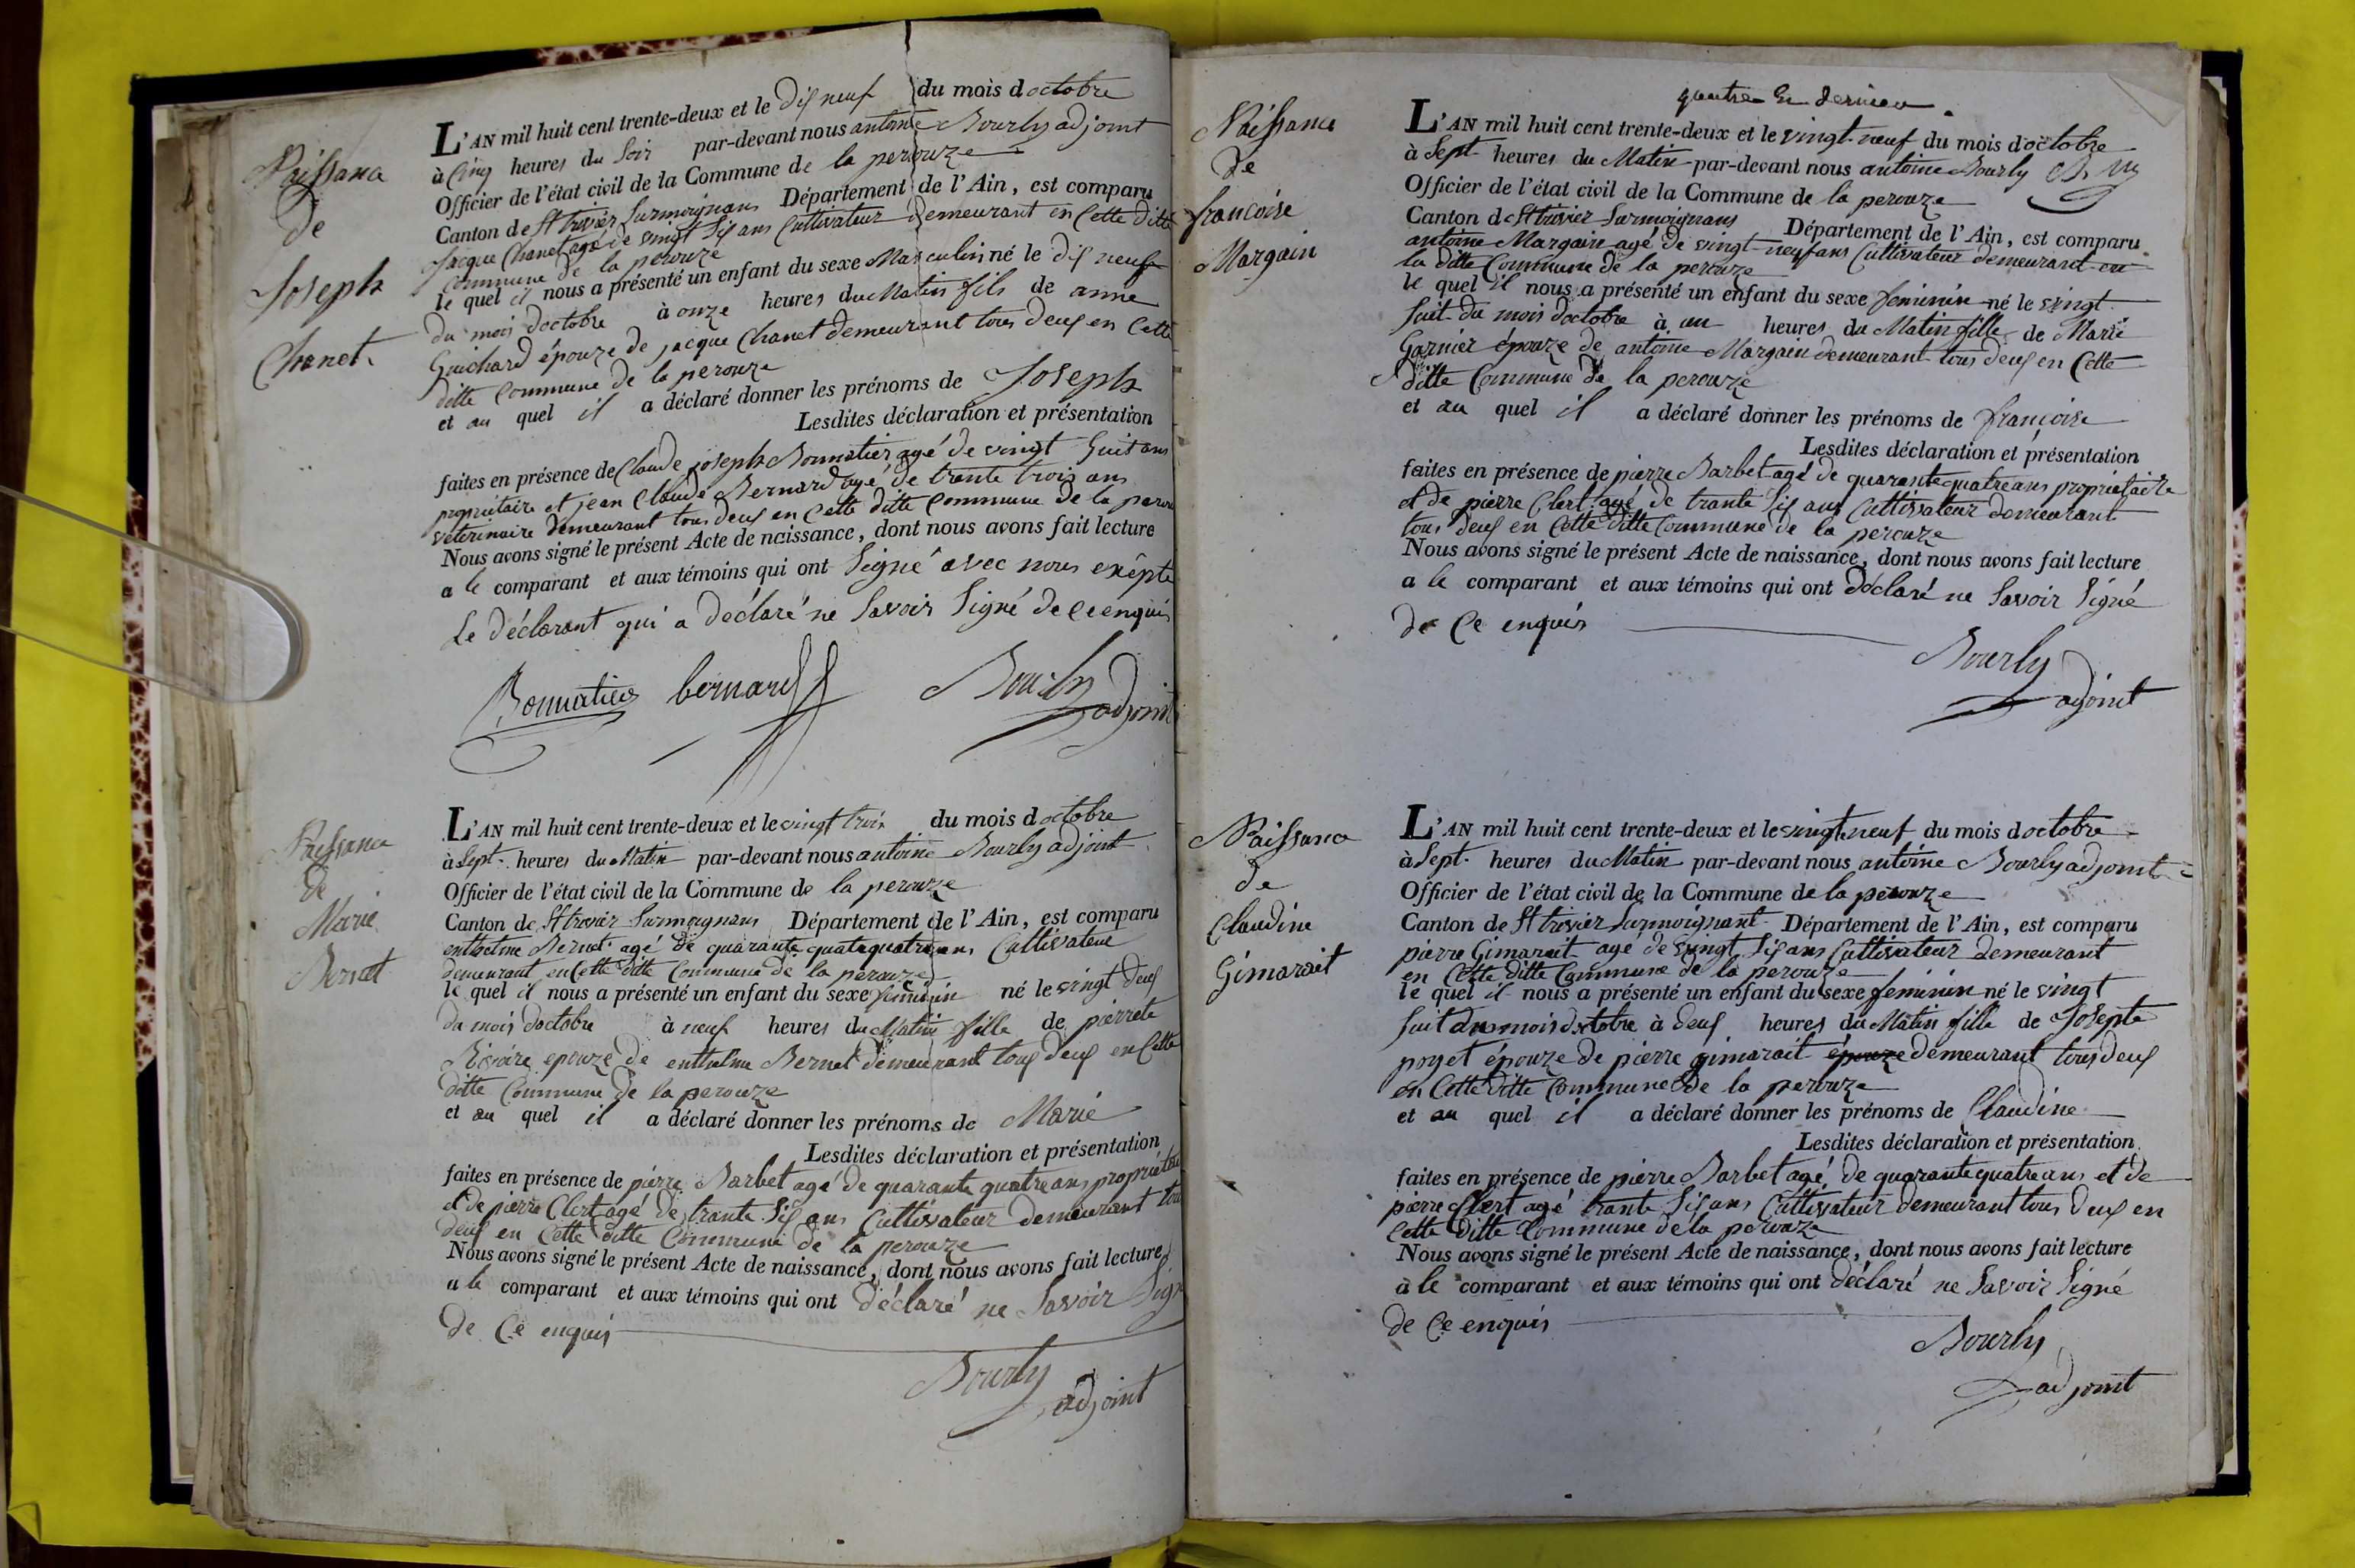 Naissance
de
Joseph
Chanet
L'AN mil huit cent trente-deux et le dix neuf du mois doctobre
à Cinq heures du Soir par-devant nous antoine Bourly adjoint
Officier de l'état civil de la Commune de la perouze
Canton de St trivier Surmoignans Département de l'Ain, est comparu
Jacque Chanet agé de vingt Six ans Cultivateur demeurant en Cette ditte
Commune de la perouze
le quel il nous a présenté un enfant du sexe Masculin né le dix neuf
du mois doctobre à onze heures du Matin fils de anne
Guichard épouze de jacque Chanet demeurant tous deux en Cette
ditte Commune de la perouze
et au quel il a déclaré donner les prénoms de Joseph
Lesdites déclaration et présentation
faites en présence de Claude joseph Bonnatier agé de vingt huit ans
propriétaire et jean Claude Bernard agé de trante trois ans
vétérinaire demeurant tous deux en Cette ditte Commune de la perou
Nous avons signé le présent Acte de naissance, dont nous avons fait lecture
a le comparant et aux témoins qui ont Signé avec nous exêpté
Le déclarant qui a déclaré ne Savoir Signé de Ce enquis
Bonnatier bernard Bourly
adjoint
Naissance
de
Marie
Bernet
L'AN mil huit cent trente-deux et le vingt trois du mois doctobre
à Sept heures du Matin par-devant nous antoine Bourly adjoint
Officier de l'état civil de la Commune de la perouze
Canton de St trivier Surmoignans Département de l'Ain, est comparu
enthelme Bernet agé de quarante quatre ans Cultivateur
demeurant en Cette ditte Commune de la perouze
le quel il nous a présenté un enfant du sexe feminin né le vingt deux
du mois doctobre à neuf heures du Matin fille de pierrete
Rivoire epouze de enthelme Bernet demeurant tous deux en Cette
ditte Commune de la perouze
et au quel il a déclaré donner les prénoms de Marie
Lesdites déclaration et présentation
faites en présence de pierre Barbet agé de quarante quatre ans propriétai
et de pierre Clert agé de trante Six ans Cultivateur demeurant tou
deux en Cette ditte Commune de la perouze
Nous avons signé le présent Acte de naissance, dont nous avons fait lecture
a le comparant et aux témoins qui ont déclaré ne Savoir Sign
de Ce enquis
Bourly
adjoint
quatre et dernier
Naissance
de
francoise
Margain
L'AN mil huit cent trente-deux et le vingt-neuf du mois d'octobre
à Sept heures du Matin par-devant nous antoine Bourly
Officier de l'état civil de la Commune de la perouze
Canton de St trivier Surmoignans Département de l'Ain, est comparu
antoine Margain agé de vingt-neuf ans Cultivateur demeurant en
la ditte Commune de la perouze
le quel il nous a présenté un enfant du sexe feminin né le vingt
huit du mois doctobre à un heures du Matin fille de Marie
Garnier épouze de antoine Margain demeurant tous deux en Cette
ditte Commune de la perouze
et au quel il a déclaré donner les prénoms de françoise
Lesdites déclaration et présentation
faites en présence de pierre Barbet agé de quarante quatre ans propriétaire
et de pierre Clert agé de trante Six ans Cultivateur demeurant
tous deux en Cette ditte Commune de la perouze
Nous avons signé le présent Acte de naissance, dont nous avons fait lecture
a le comparant et aux témoins qui ont déclaré ne Savoir Signé
de Ce enquis
Bourly
adjoint
Naissance
de
Claudine
Gimarait
L'AN mil huit cent trente-deux et le vingt neuf du mois doctobre
à Sept heures du Matin par-devant nous antoine Bourly adjoint
Officier de l'état civil de la Commune de la perouze
Canton de St trivier Surmoignant Département de l'Ain, est comparu
pierre Gimarait agé de vingt Six ans Cultivateur demeurant
en Cette ditte Commune de la perouze
le quel il nous a présenté un enfant du sexe feminin né le vingt
huit du mois doctobre à deux heures du Matin fille de Josepte
poyet épouze de pierre gimarait épouze demeurant tous deux
en Cette ditte Commune de la perouze
et au quel il a déclaré donner les prénoms de Claudine
Lesdites déclaration et présentation
faites en présence de pierre Barbet agé de quarante quatre ans et de
pierre Clert agé trante Six ans Cultivateur demeurant tous deux en
Cette ditte Commune de la perouze
Nous avons signé le présent Acte de naissance, dont nous avons fait lecture
à le comparant et aux témoins qui ont déclaré ne Savoir Signé
de Ce enquis
Bourly
adjoint